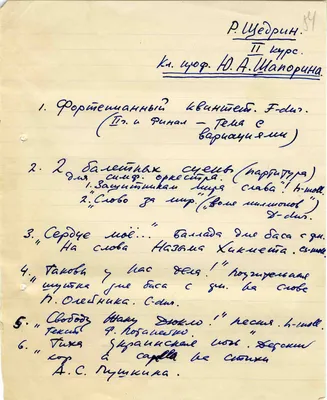 54
Р. Щедрин.
II курс.
Кл. проф. Ю. А. Шапорина.
1. Фортепианный квинтет. F-dur.
(II ч. и финал – тема с
вариациями)
2. 2 балетных сцены (партитура)
для симф. оркестра.
1. Защитникам мира слава! h-moll.
2. "Слово за мир" ("воля миллионов")
D-dur.
3. "Сердце моё..." баллада для баса с ф.
На слова Назыма Хикмета.
4. "Таковы у нас дела!"
шутка для баса с ф. на слова
П. Олейника. C-dur.
5. "Свободу Жаку Дюкло!" песня. h-moll.
Текст
6. "Тиха украинская ночь". Детский
хор a capella на стихи
А. С. Пушкина.